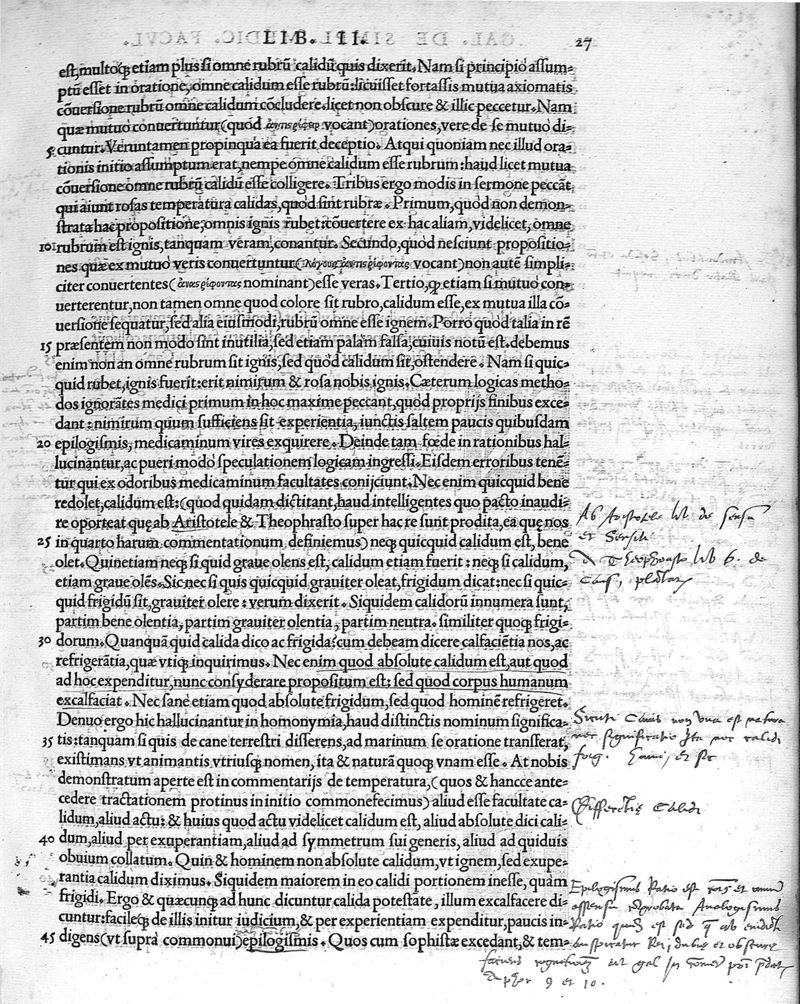 LIB. II. 27
est, multoq; etiam plus si omne rubrū calidū quis dixerit. Nam si principio assum-
ptū esset in oratione, omne calidum esse rubrū: licuisset fortassis mutua axiomatis
cōuersione rubrū omne calidum cōcludere. licet non obscure & illic peccetur. Nam
quæ mutuo conuertuntur (quod vocant) orationes, vere de se mutuo di-
5 cuntur. Veruntamen propinqua ea fuerit deceptio. Atqui quoniam nec illud ora-
tionis initio assumptum erat, nempe omne calidum esse rubrum: haud licet mutua
cōuersione omne rubrū calidū esse colligere. Tribus ergo modis in sermone peccāt
qui aiunt rosas temperatura calidas, quod sint rubræ. Primum, quod non demon-
strata hac propositione, omnis ignis rubet: cōuertere ex hac aliam, videlicet, omne
10 rubrum est ignis, tanquam veram, conantur. Secundo, quod nesciunt propositio-
nes quæ ex mutuo veris conuertuntur (λόγους ἀντιστρέφοντας vocant) non autē simpli-
citer conuertentes (ἀναστρέφοντας nominant) esse veras. Tertio, q etiam si mutuo con-
uerterentur, non tamen omne quod colore sit rubro, calidum esse, ex mutua illa cō-
uersione sequatur, sed alia eiusmodi, rubrū omne esse ignem. Porro quod talia in rē
15 præsentem non modo sint inutilia, sed etiam palam falsa, cuiuis notū est. debemus
enim non an omne rubrum sit ignis, sed quod calidum sit, ostendere. Nam si quic-
quid rubet, ignis fuerit: erit nimirum & rosa nobis ignis. Cæterum logicas metho-
dos ignorātes medici primum in hoc maxime peccant, quod proprijs finibus exce-
dant: nimirum quum sufficiens sit experientia, iunctis saltem paucis quibusdam
20 epilogismis, medicaminum vires exquirere. Deinde tam fœde in rationibus hal-
lucinantur, ac pueri modo speculationem logicam ingressi. Eisdem erroribus tenē-
tur qui ex odoribus medicaminum facultates conijciunt. Nec enim quicquid bene
redolet, calidum est: (quod quidam dictitant, haud intelligentes quo pacto inaudi-
re oporteat quę ab Aristotele & Theophrasto super hac re sunt prodita, ea quę nos
25 in quarto harum commentationum definiemus) neq; quicquid calidum est, bene
olet. Quinetiam neq; si quid graue olens est, calidum etiam fuerit: neq; si calidum,
etiam graue olēs. Sic nec si quis quicquid grauiter oleat, frigidum dicat: nec si quic-
quid frigidū sit, grauiter olere: verum dixerit. Siquidem calidorū innumera sunt,
partim bene olentia, partim grauiter olentia, partim neutra. similiter quoq; frigi-
30 dorum. Quanquā quid calida dico ac frigida? cum debeam dicere calfaciētia nos, ac
refrigerātia, quæ vtiq; inquirimus. Nec enim quod absolute calidum est, aut quod
ad hoc expenditur, nunc consyderare propositum est: sed quod corpus humanum
excalfaciat. Nec sane etiam quod absolute frigidum, sed quod hominē refrigeret.
Denuo ergo hic hallucinantur in homonymia, haud distinctis nominum significa-
35 tis: tanquam si quis de cane terrestri disserens, ad marinum se oratione transferat,
existimans vt animantis vtriusq; nomen, ita & naturā quoq; vnam esse. At nobis
demonstratum aperte est in commentarijs de temperatura, (quos & hancce ante-
cedere tractationem protinus in initio commonefecimus) aliud esse facultate ca-
lidum, aliud actu: & huius quod actu videlicet calidum est, aliud absolute dici cali-
40 dum, aliud per exuperantiam, aliud ad symmetrum sui generis, aliud ad quiduis
obuium collatum. Quin & hominem non absolute calidum, vt ignem, sed exupe-
rantia calidum diximus. Siquidem maiorem in eo calidi portionem inesse, quàm
frigidi. Ergo & quæcunq; ad hunc dicuntur calida potestate, illum excalfacere di-
cuntur: facileq; de illis initur iudicium, & per experientiam expenditur, paucis in-
45 digens (vt suprà commonui) epilogismis. Quos cum sophistæ excedant, & tem-
Ab Aristotele lib. de sensu
et sensili
A Theophrasto lib 6. de
caus, plātar
Sicuti canis non vna est natura
nec significatio Ita nec calidi
frig.
Differētię Calidi
Epilogismus Ratio est et
assensu Analogismus
Ratio est
9 et 10.